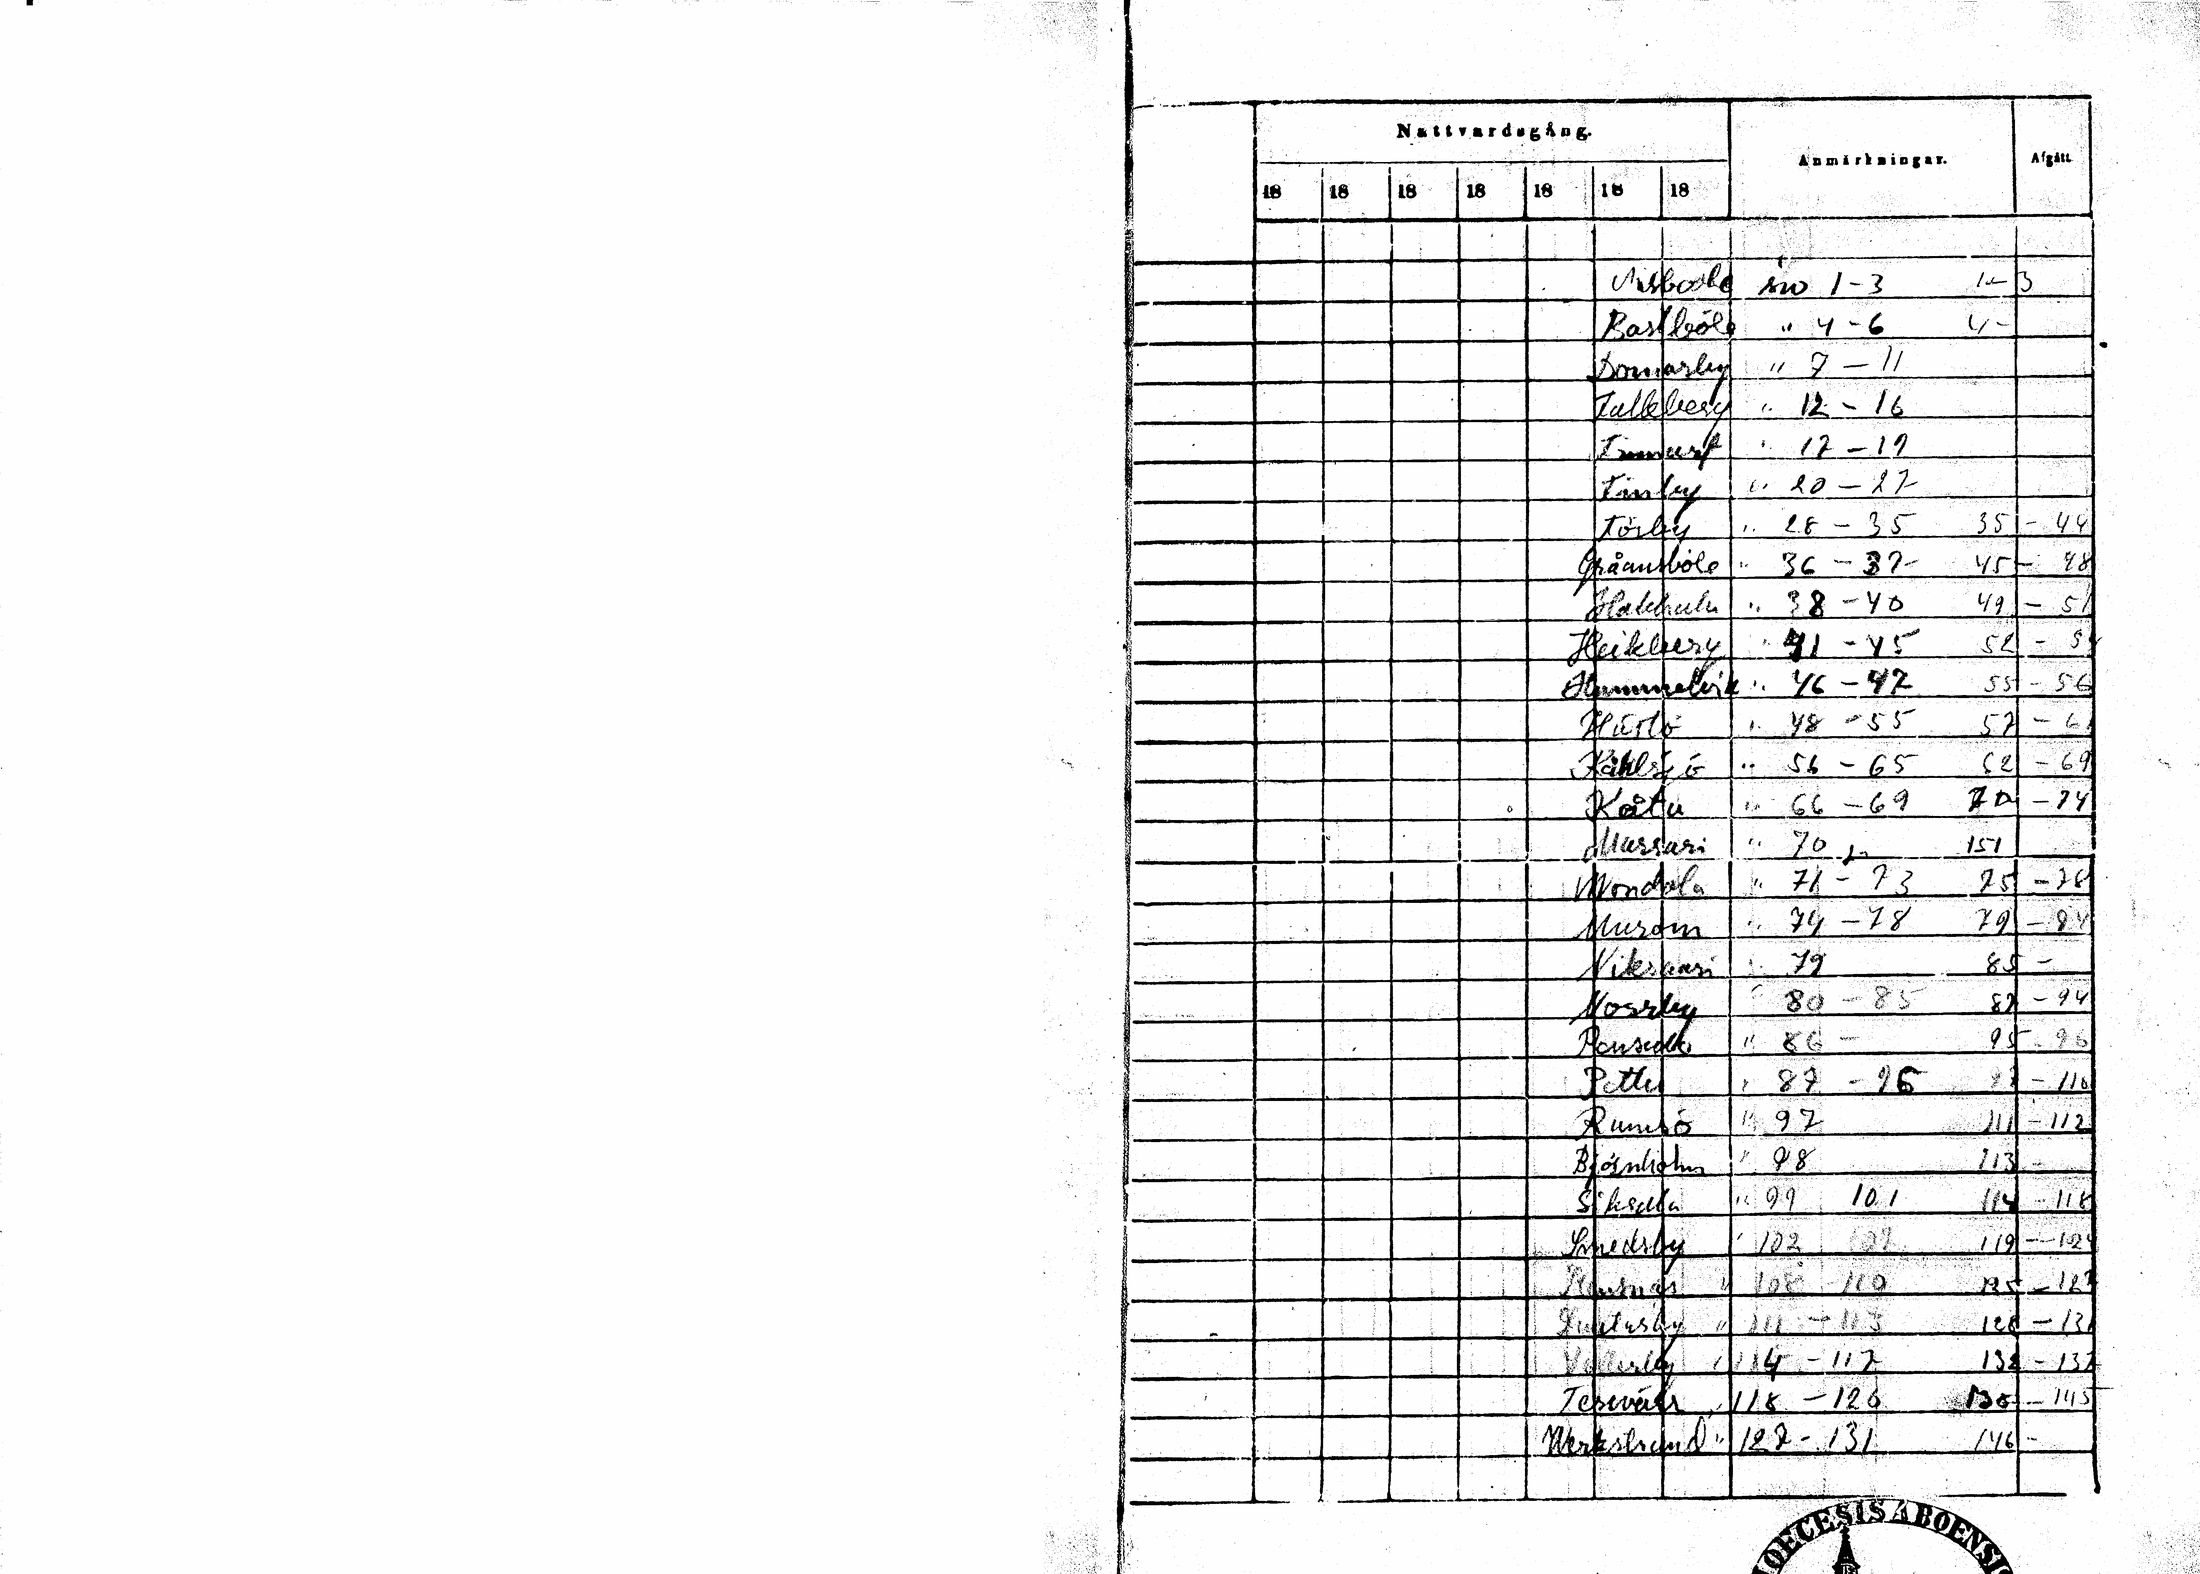 Nattvardsgång.
Anmärkningar. Afgått.
18 18 18 18 18 18 18
Misbodle sio 1-3 1-3
Bastböle " 4-6 4-
Domarby " 7-11
Falkberg " 12-16
" 17-19
Finby " 20-27
Förby " 28-35 35-44
Gråansböle " 36-37 45-48
" 38-40 49-51
Heikberg " 41-45 52-54
Hummelvik " 46-47 55-56
" 48-55 57-61
" 56-65 62-69
Kåtu " 66-69 70-74
" 70 151
Mondola " 71-73 75-78
Muröm " 74-78 79-84
Niksaari " 79 85-
Norrby " 80-85 87-94
" 86- 95-96
Pettu " 87-96 97-110
Rumsö " 97 111-112
Björnholm " 98 113-
Siksala " 99 101 114-118
Smedsby " 102 107 119-124
" 108-110 125-127
" 111-113 128-131
" 114-117 132-137
" 118-126 -145
Werkstrand " 127-131 146-
DIOECESIS ABOENSI